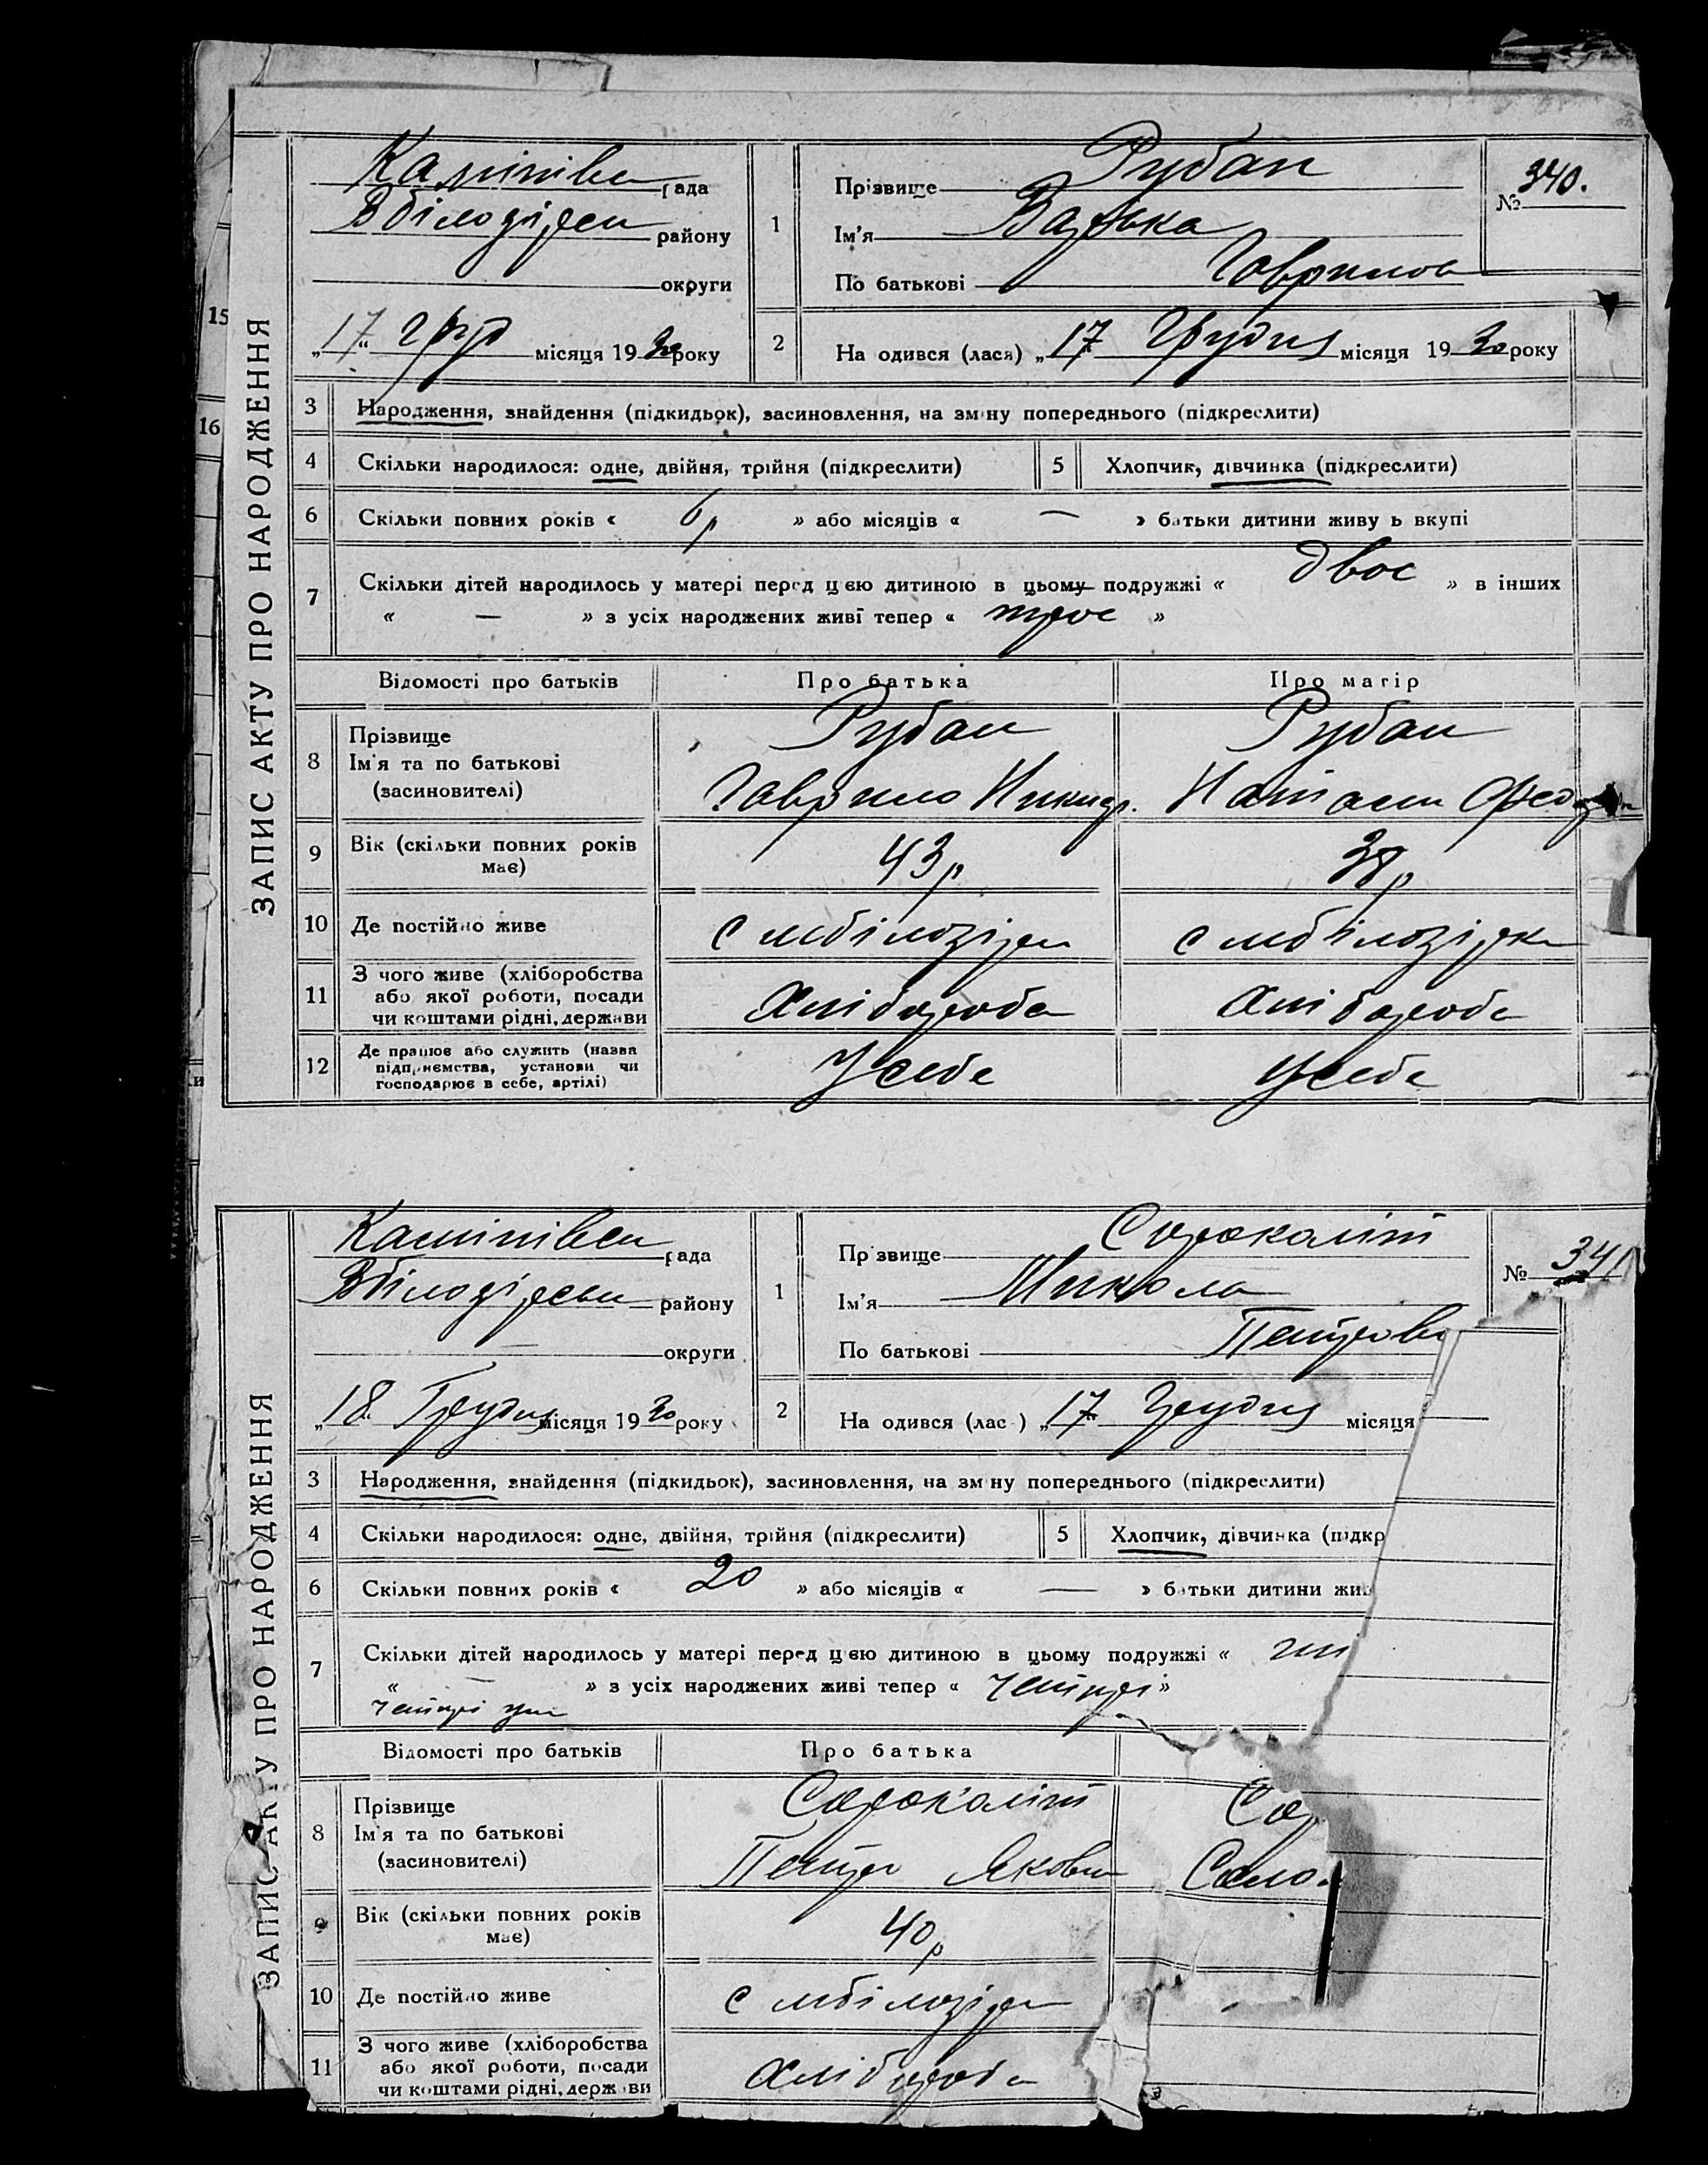 ЗАПИС АКТУ ПРО НАРОДЖЕННЯ
рада
району
округи
„17“ груд місяця 1930 року
1
Прізвище Рубан
Ім'я
По батькові
№ 340.
2
На одився (лася) „17“ Грудня місяця 1930 року
3 Народження, знайдення (підкидьок), засиновлення, на зміну попереднього (підкреслити)
4 Скільки народилося: одне, двійня, трійня (підкреслити)
5 Хлопчик, дівчинка (підкреслити)
6 Скільки повних років « 6р » або місяців « — » батьки дитини живу ь вкупі
7 Скільки дітей народилось у матері перед цією дитиною в цьому подружжі « двоє » в інших
« — » з усіх народжених живі тепер « троє »
Відомості про батьків Про батька Про матір
8 Прізвище Рубан Рубан
Ім'я та по батькові Гаврило
(засиновителі)
9 Вік (скільки повних років має) 43р 38р
10 Де постійно живе с
11 З чого живе (хліборобства
або якої роботи, посади Хлібороб Хлібороб
чи коштами рідні, держави
12 Де працює або служить (назва
підприємства, установи чи У себе У себе
господарює в себе, артілі)
ЗАПИС АКТУ ПРО НАРОДЖЕННЯ
рада
району
округи
„18“ Грудня місяця 1930 року
1
Прізвище Сороколіт
Ім'я Микола
По батькові Петрови
№ 341
2
На одився (лас ) „17“ Грудня місяця
3 Народження, знайдення (підкидьок), засиновлення, на зміну попереднього (підкреслити)
4 Скільки народилося: одне, двійня, трійня (підкреслити)
5 Хлопчик, дівчинка (підкр
6 Скільки повних років « 20 » або місяців « — » батьки дитини жив
7 Скільки дітей народилось у матері перед цією дитиною в цьому подружжі «
« — » з усіх народжених живі тепер « четирі »
четирі
Відомості про батьків Про батька
8 Прізвище Сороколіт Сор
Ім'я та по батькові Петро Якови Соло
(засиновителі)
9 Вік (скільки повних років має) 40р
10 Де постійно живе с
11 З чого живе (хліборобства
або якої роботи, посади Хлібороб
чи коштами рідні, держави